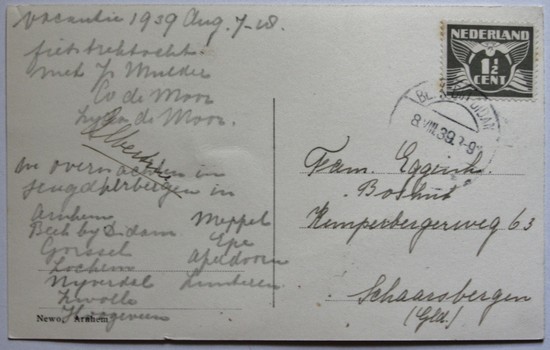 vacantie 1939 Aug. 7-18.
fietstrektocht.
met Jr Mulder
Co de Moor
de Moor.
en overnachten in
jeugdherbergen in
Arnhem
Beek by Didam
Gorssel
Lochem
Nyverdal
Zwolle
Hoogeveen
Meppel
Epe
Apeldoorn
Lunteren
Newo, Arnhem
NEDERLAND
1½
CENT
8.VIII.39
Fam. Eggink
Boshut
Kemperbergerweg 63
Schaarsbergen
(Gld.)